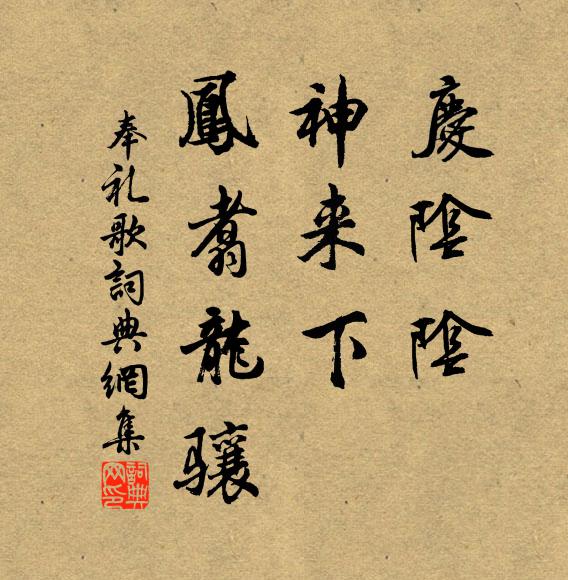 慶陰陰
神来下
鳳翥龍驤
奉礼歌詞典網集
詞典网印